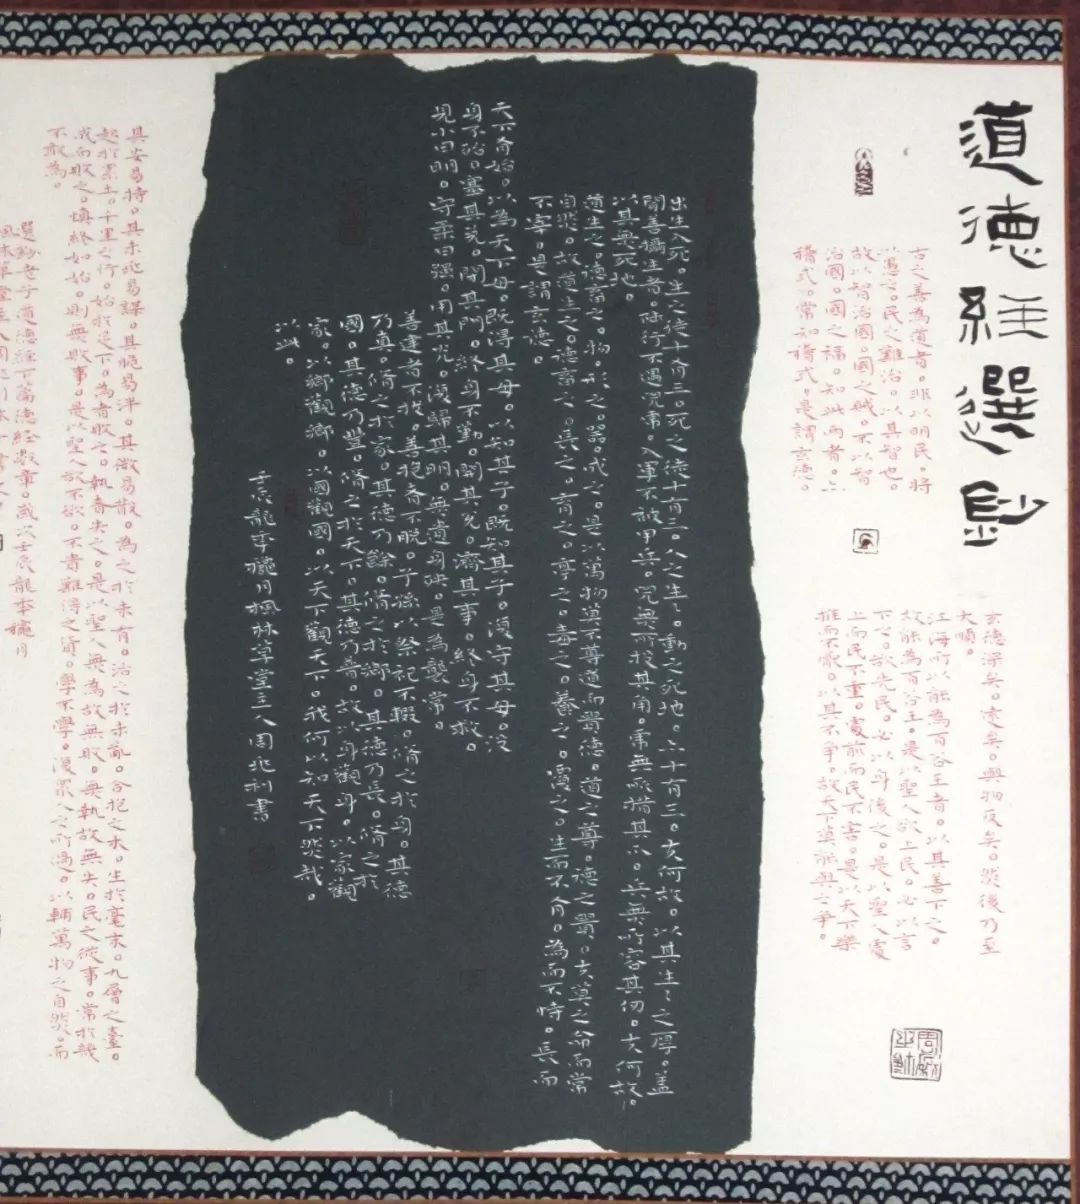 道德經選鈔
古之善為道者。非以明民。將
以愚之。民之難治。以其智也。
故以智治國。國之賊。不以智
治國。國之福。知此兩者。亦
稽式。常知稽式。是謂玄德。
玄德深矣。遠矣。與物反矣。然後乃至
大順。
江海所以能為百谷王者。以其善下之。
故能為百谷王。是以聖人欲上民。必以言
下之。欲先民。必以身後之。是以聖人處
上而民不重。處前而民不害。是以天下樂
推而不厭。以其不爭。故天下莫能與之爭。
出生入死。生之徒十有三。死之徒十有三。人之生。動之死地。亦十有三。夫何故。以其生生之厚。蓋
聞善攝生者。陸行不遇兕虎。入軍不被甲兵。兕無所投其角。虎無所措其爪。兵無所容其刃。夫何故。
以其無死地。
道生之。德畜之。物形之。器成之。是以萬物莫不尊道而貴德。道之尊。德之貴。夫莫之命而常
自然。故道生之。德畜之。長之。育之。亭之。毒之。養之。覆之。生而不有。為而不恃。長而
不宰。是謂玄德。
天下有始。以為天下母。既得其母。以知其子。既知其子。復守其母。沒
身不殆。塞其兌。閉其門。終身不勤。開其兌。濟其事。終身不救。
見小曰明。守柔曰强。用其光。復歸其明。無遺身殃。是為襲常。
善建者不拔。善抱者不脫。子孫以祭祀不輟。脩之於身。其德
乃真。脩之於家。其德乃餘。脩之於鄉。其德乃長。脩之於
國。其德乃豐。脩之於天下。其德乃普。故以身觀身。以家觀
家。以鄉觀鄉。以國觀國。以天下觀天下。我何以知天下然哉。
以此。
壬辰龍年穐月楓林草堂主人周兆利書
其安易持。其未兆易謀。其脆易泮。其微易散。為之於未有。治之於未亂。合抱之木。生於毫末。九層之臺。
起於累土。千里之行。始於足下。為者敗之。執者失之。是以聖人無為故無敗。無執故無失。民之從事。常於幾
成而敗之。慎終如始。則無敗事。是以聖人欲不欲。不貴難得之貨。學不學。復眾人之所過。以輔萬物之自然。而
不敢為。
選鈔老子道德經下篇德經數章。歲次壬辰龍年穐月